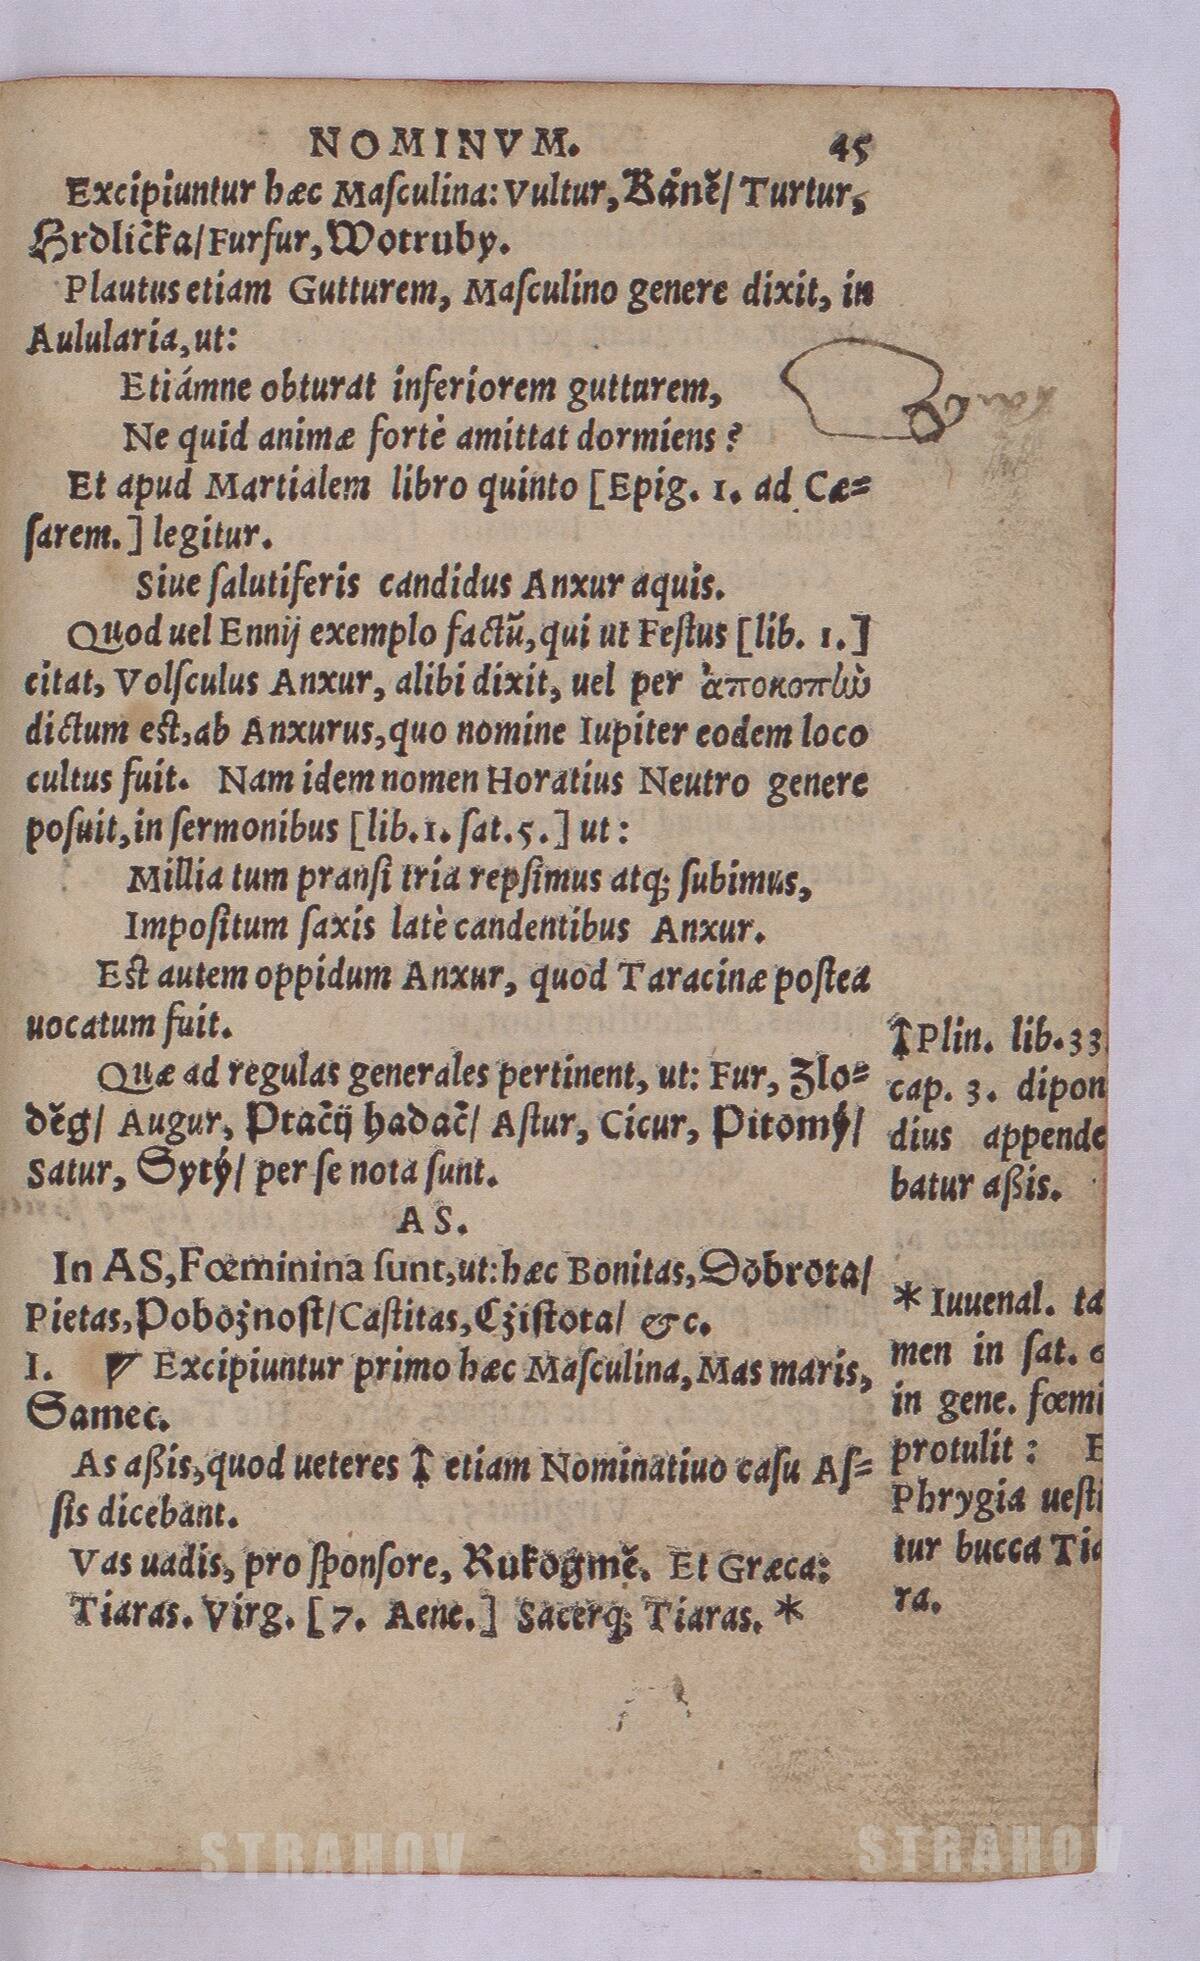 NOMINVM. 45
Excipiuntur hæc Maſculina: Vultur, Káně/ Turtur,
Hrdlička/ Furfur, Wotruby.
Plautus etiam Gutturem, Maſculino genere dixit, in
Aulularia, ut:
Etiámne obturat inferiorem gutturem,
Ne quid animæ fortè amittat dormiens?
Et apud Martialem libro quinto [Epig. 1. ad Cæ=
ſarem.] legitur.
Siue ſalutiferis candidus Anxur aquis.
Quod uel Ennij exemplo factũ, qui ut Feſtus [lib. 1.]
citat, Volſculus Anxur, alibi dixit, uel per
dictum eſt, ab Anxurus, quo nomine Iupiter eodem loco
cultus fuit. Nam idem nomen Horatius Neutro genere
poſuit, in ſermonibus [lib. 1. ſat. 5.] ut:
Millia tum pranſi tria repſimus atq; ſubimus,
Impoſitum ſaxis latè candentibus Anxur.
Eſt autem oppidum Anxur, quod Taracinæ poſtea
uocatum fuit.
Quæ ad regulas generales pertinent, ut: Fur, Zlo=
děg/ Augur, Ptačij hadač/ Aſtur, Cicur, Pitomý/
Satur, Sytý/ per ſe nota ſunt.
AS.
In AS, Fœminina ſunt, ut: hæc Bonitas, Dobrota/
Pietas, Pobožnoſt/ Caſtitas, Cžiſtota/ &c.
I. Excipiuntur primo hæc Maſculina, Mas maris,
Samec.
As aßis, quod ueteres † etiam Nominatiuo caſu Aſ=
ſis dicebant.
Vas uadis, pro ſponſore, Rukogmě. Et Græca:
Tiaras. Virg. [7. Aene.] Sacerq; Tiaras. *
†Plin. lib. 33
cap. 3. dipon
dius appende
batur aßis.
* Iuuenal. ta
men in ſat. 6
in gene. fœmi
protulit: E
Phrygia ueſti
tur bucca Tia
ra.
STRAHOV
STRAHOV